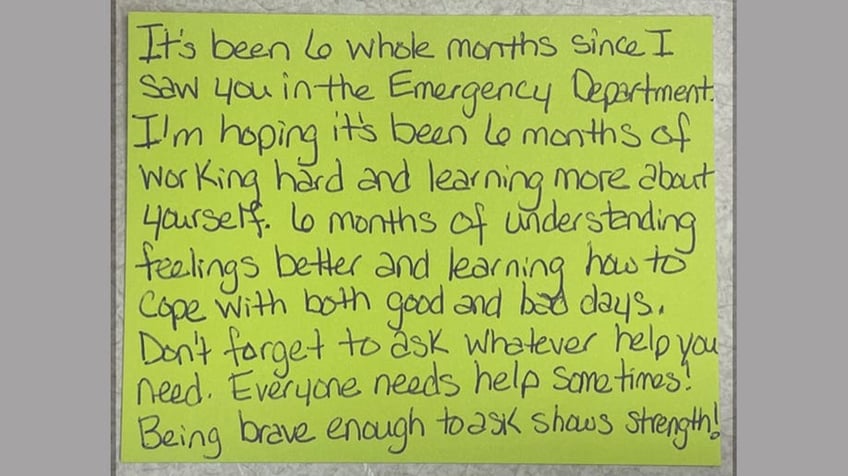 It's been 6 whole months since I
saw you in the Emergency Department.
I'm hoping it's been 6 months of
working hard and learning more about
yourself. 6 months of understanding
feelings better and learning how to
cope with both good and bad days.
Don't forget to ask whatever help you
need. Everyone needs help sometimes!
Being brave enough to ask shows strength!